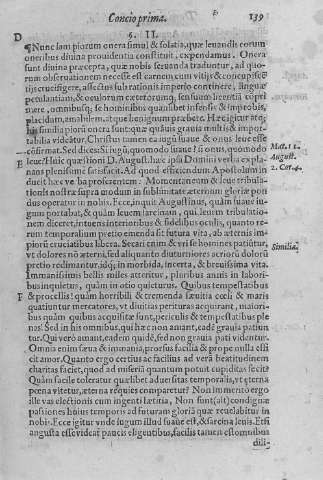 Concio prima. 139
D
§. II.
¶Nunc iam piorum opera simul & solatia, quæ leuandis eorum
oneribus diuina prouidentia constituit, expendamus. Onera
sunt diuina præcepta, quæ nobis seruanda traduntur, ad quo-
rum obseruationem necesse est carnem cum vitijs & concupiscē-
tijs crucifigere, affectus sub rationis imperio continere, linguæ
petulantiam, & oculorum cæterorumq; sensuum licentiã coprī
mere, omnibusq; se hominibus quamlibet infensis & improbis,
placidum, amabilem, atque benignum præbere. Hæc igitur atq;
his similia piorũ onera sunt: quæ quãuis grauia multis & impor-
tabilia videãtur. Christus tamen ea iugũ suaue & onus leue esse
cõfirmat. Sed dices: Si iugũ, quomodo suaue? si onus, quomodo
E
leue? Huic quæstioni D. August. hæc ipsa Domini verba expla-
Mat. 11.
nans plenissime satisfacit. Ad quod efficiendum Apostolum in
August.
ducit hæc verba proferentem. Momentaneum & leue tribula-
2. Cor. 4.
tionis nostræ supra modum in sublimitate æternum gloriæ pon
dus operatur in nobis. Ecce, inquit Augustinus, quàm suaue iu-
gum portabat, & quàm leuem sarcinam, qui leuem tribulatio-
nem diceret, intueris interioribus & fidelibus oculis, quanto re-
rum temporalium pretio emenda sit futura vita, ab æternis im-
piorũ cruciatibus libera. Secari enim & vri se homines patiũtur,
Similia.
vt dolores nõ æterni, sed aliquanto diuturniores acriorũ dolorũ
pretio redimantur. idq; in morbida, incerta, & breuissima vita.
Immanissimis bellis miles atteritur, pluribus annis in labori-
bus inquietus, quàm in otio quieturus. Quibus tempestatibus
F
& procellis! quàm horribili & tremenda sæuitia cœli & maris
quatiuntur mercatores, vt diuitias perituras acquirant, maiori-
bus quàm quibus acquisitæ sunt, periculis & tempestatibus ple
nas! Sed in his omnibus, qui hæc non amant, eadē grauia patiun
tur. Qui verò amant, eadem quidē, sed non grauia pati videntur.
Omnia enim sæua & immania, prorsus facilia & prope nulla effi
cit amor. Quanto ergo certius ac facilius ad verã beatitudinem
charitas faciet, quod ad miseriã quantum potuit cupiditas fecit?
Quàm facile toleratur quælibet aduersitas temporalis, vt æterna
pœna vitetur, æterna requies comparetur? Non immeritò ergo
ille vas electionis cum ingenti lætitia, Non sunt (ait) condignæ
passiones huius temporis ad futuram gloriã quæ reuelabitur in
nobis. Ecce igitur vnde iugum illud suaue est, & sarcina leuis. Etsi
angusta esse videat paucis eligentibus, facilis tamen est omnibus
dili-